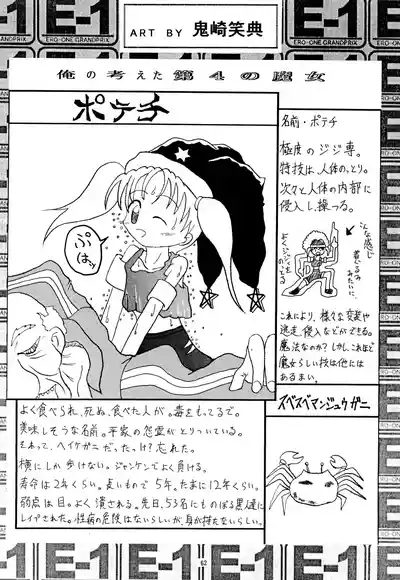 E-1
ERO-ONE GRANDPRIX
ART BY 鬼崎笑典
俺の考えた第4の魔女
ポテチ
ぷはッ
名前・ポテチ
極度のジジ専。
特技は、人体のっとり。
次々と人体の内部に
侵入し、操つる。
こんな感じ
着ぐるみ
みたいに。
よくジジイをのっとる
これにより、様々な変装や
逃走、侵入などができる。
魔法なのか?しかし、これほど
魔女らしい技は他には
あるまい。
スベスベマンジュウガニ
よく食べられ、死ぬ。食べた人が。毒をもってるで。
美味しそうな名前。平家の怨霊がとりついている。
それって、ヘイケガニだったっけ?忘れた。
横にしか歩けない。ジャンケンでよく負ける。
寿命は2年くらい。良いもので5年。たまに12年くらい。
弱点は目。よく潰される。先日、53名にものぼる黒人達に
レイプされた。性病の危険はないらしいが、身が持たないらしい。
62